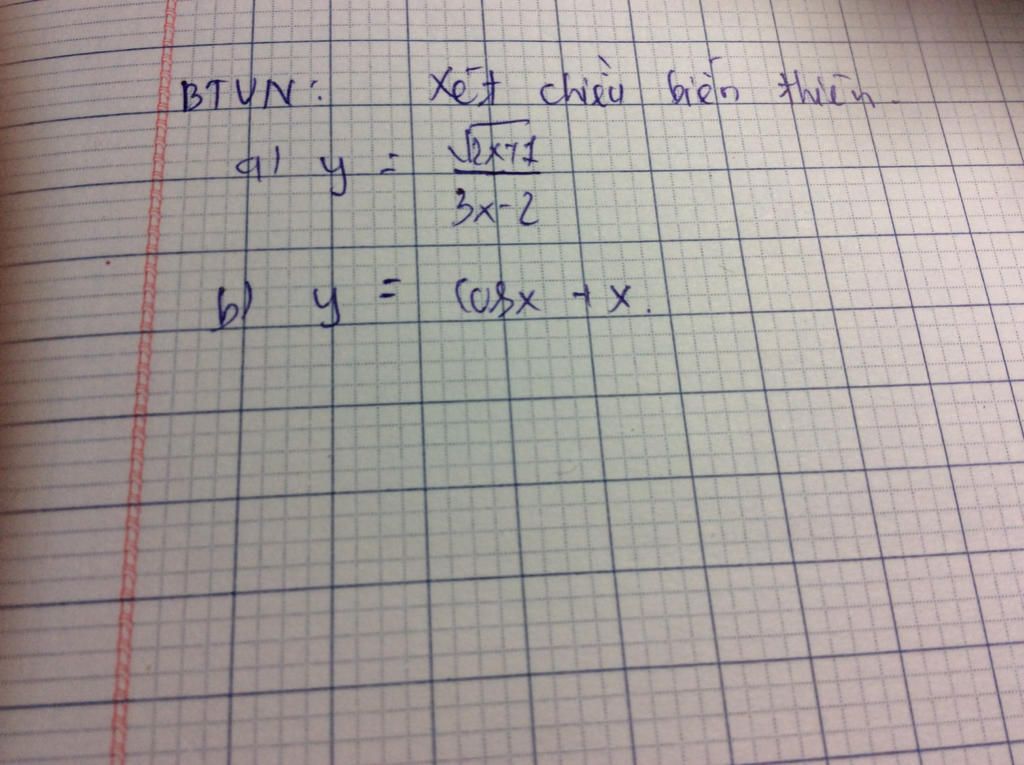 BTVN: Xét chiều biến thiên.
a) y = √(2x+1) / (3x-2)
b) y = cosx + x.